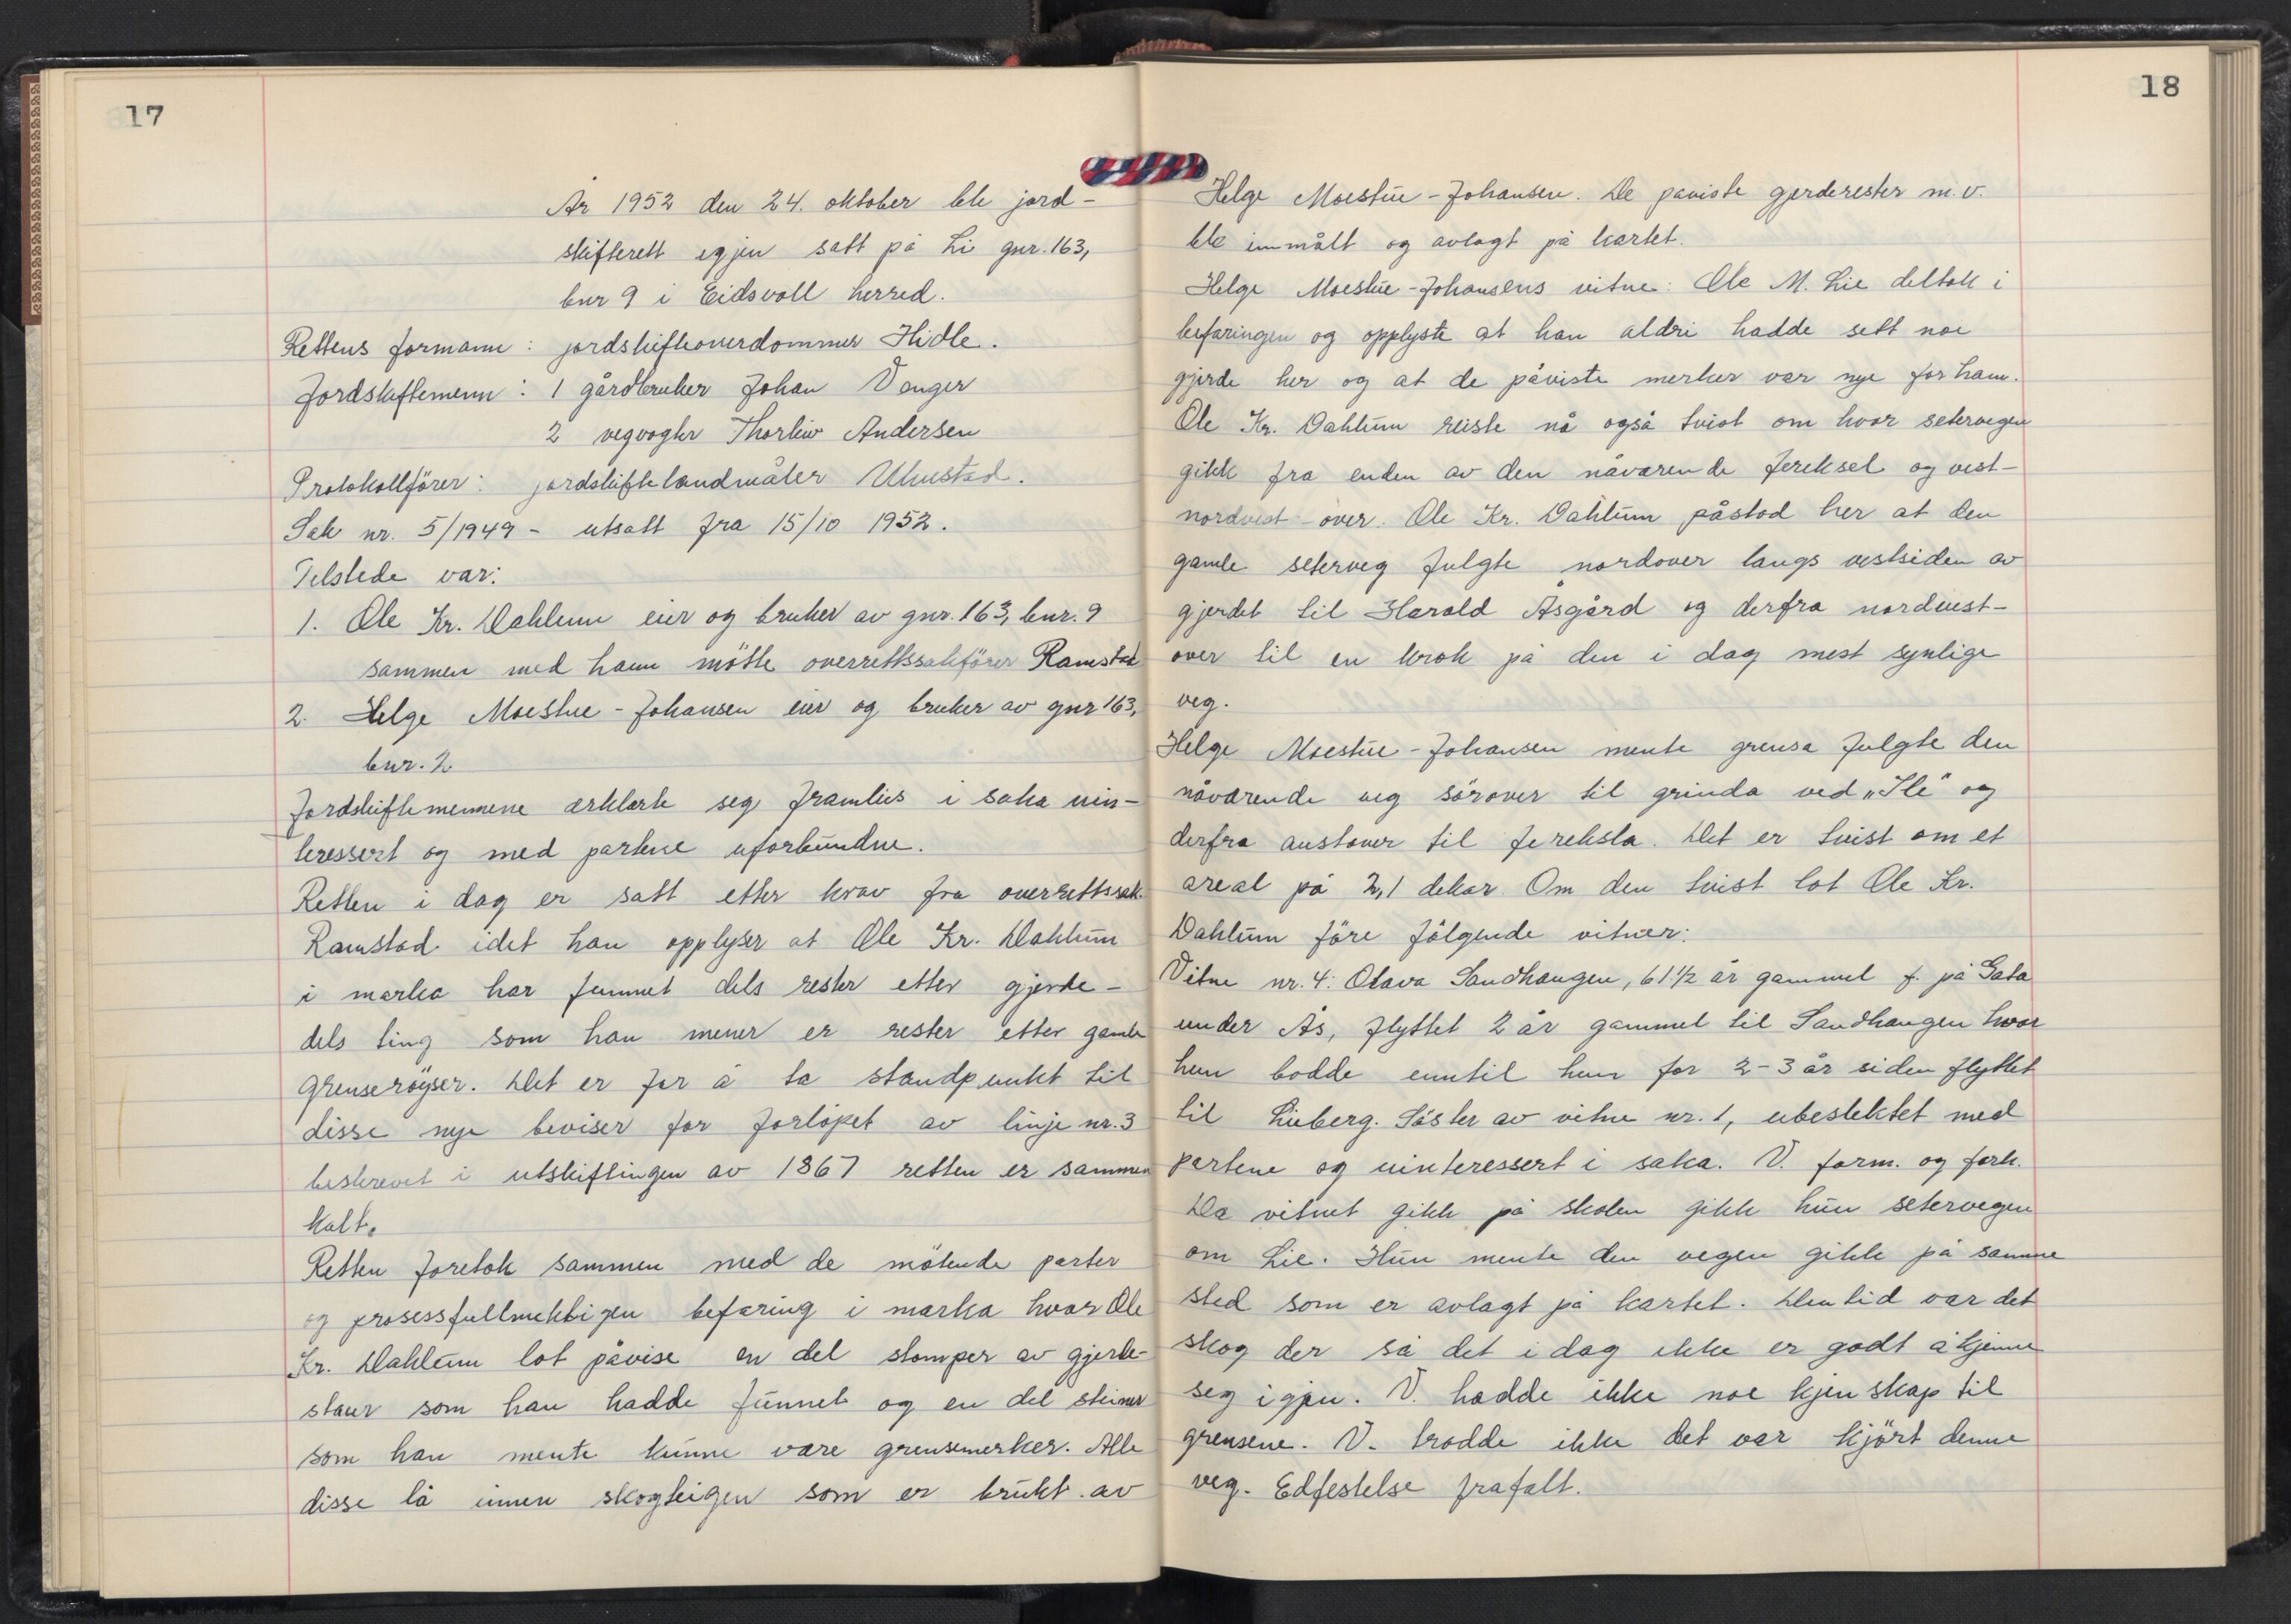 17
År 1952 den 24. oktober ble jord-
skifterett igjen satt på Li gnr. 163,
bnr 9 i Eidsvoll herred.
Rettens formann: jordskifteoverdommer Hidle.
Jordskiftemenn: 1 gårdbruker Johan Venger
2 vegvogter Thorleiv Andersen
Protokollförer: jordskiftelandmåler
Sak nr. 5/1949 - utsatt fra 15/10 1952.
Tilstede var:
1. Ole Kr. Dahlum eier og bruker av gnr. 163, bnr. 9
sammen med ham mötte overrettssakförer Ramstad
2. Helge Moestue-Johansen eier og bruker av gnr 163,
bnr. 2
Jordskiftemennene erklærte seg framleis i saka uin-
teressert og med partene uforbundne.
Retten i dag er satt etter krav fra overrettssak.
Ramstad idet han opplyser at Ole Kr. Dahlum
i marka har funnet dels rester etter gjerde-
dels ting som han mener er rester etter gamle
grenseröyser. Det er for å ta standpunkt til
disse nye beviser for forlöpet av linje nr. 3
beskrevet i utskiftingen av 1867 retten er sammen
kalt.
Retten foretok sammen med de mötende parter
og prosessfullmektigen befaring i marka hvor Ole
Kr. Dahlum lot påvise en del stomper av gjerde-
staur som han hadde funnet og en del steiner
som han mente kunne være grensemerker. Alle
disse lå innen skogteigen som er brukt av
18
Helge Moestue-Johansen. De påviste gjerderester m.v.
ble innmålt og avlagt på kartet.
Helge Moestue-Johansens vitne: Ole M. Lie deltok i
befaringen og opplyste at han aldri hadde sett noe
gjerde her og at de påviste merker var nye for ham.
Ole Kr. Dahlum reiste nå også tvist om hvor setervegen
gikk fra enden av den nåværende fereksel og vest-
nordvest-over. Ole Kr. Dahlum påstod her at den
gamle seterveg fulgte nordover langs vestsiden av
gjerdet til Harald Åsgård og derfra nordvest-
over til en krok på den i dag mest synlige
veg.
Helge Moestue-Johansen mente grensa fulgte den
nåværende veg sörover til grinda ved „Ile" og
derfra austover til fereksla. Det er tvist om et
areal på 2,1 dekar. Om den tvist lot Ole Kr.
Dahlum före fölgende vitner:
Vitne nr. 4: Olava Sandhaugen, 61 1/2 år gammel f. på Gata
under Ås, flyttet 2 år gammel til Sandhaugen hvor
hun bodde inntil hun for 2-3 år siden flyttet
til Lieberg. Söster av vitne nr. 1, ubeslektet med
partene og uinteressert i saka. V. form. og fork.
Da vitnet gikk på skolen gikk hun setervegen
om Lie. Hun mente den vegen gikk på samme
sted som er avlagt på kartet. Den tid var det
skog der så det i dag ikke er godt å kjenne
seg igjen. V. hadde ikke noe kjenskap til
grensene. V. trodde ikke det var kjört denne
veg. Edfestelse frafalt.